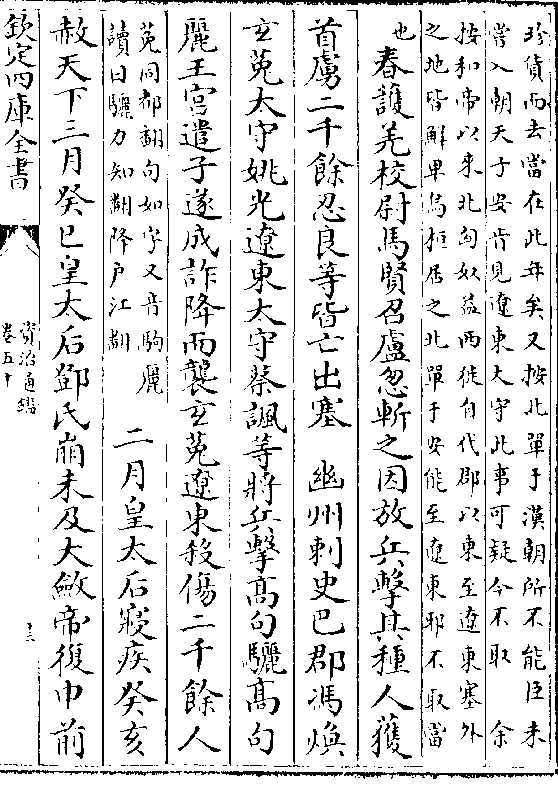 珍貨而去當在此年矣又按此單于漢朝所不能臣未
嘗入朝天子安肯見遼東太守此事可疑今不取 余
按和帝以來北匈奴益西徙自代郡以東至遼東塞外
之地皆鮮卑烏桓居之北單于安能至遼東邪不取當
也
春護羌校尉馬賢召盧怱斬之因放兵擊其種人獲
首虜二千餘忍良等皆亡出塞 幽州刺史巴郡馮煥
玄菟太守姚光遼東太守蔡諷等將兵擊高句驪高句
麗王宮遣子遂成詐降而襲玄菟遼東殺傷二千餘人
菟同都翻句如字又音駒麗
讀曰驪力知翻降戶江翻
二月皇太后寢疾癸亥
赦天下三月癸巳皇太后鄧氏崩未及大斂帝復申前
欽定四庫全書
資治通鑑
卷五十
十三